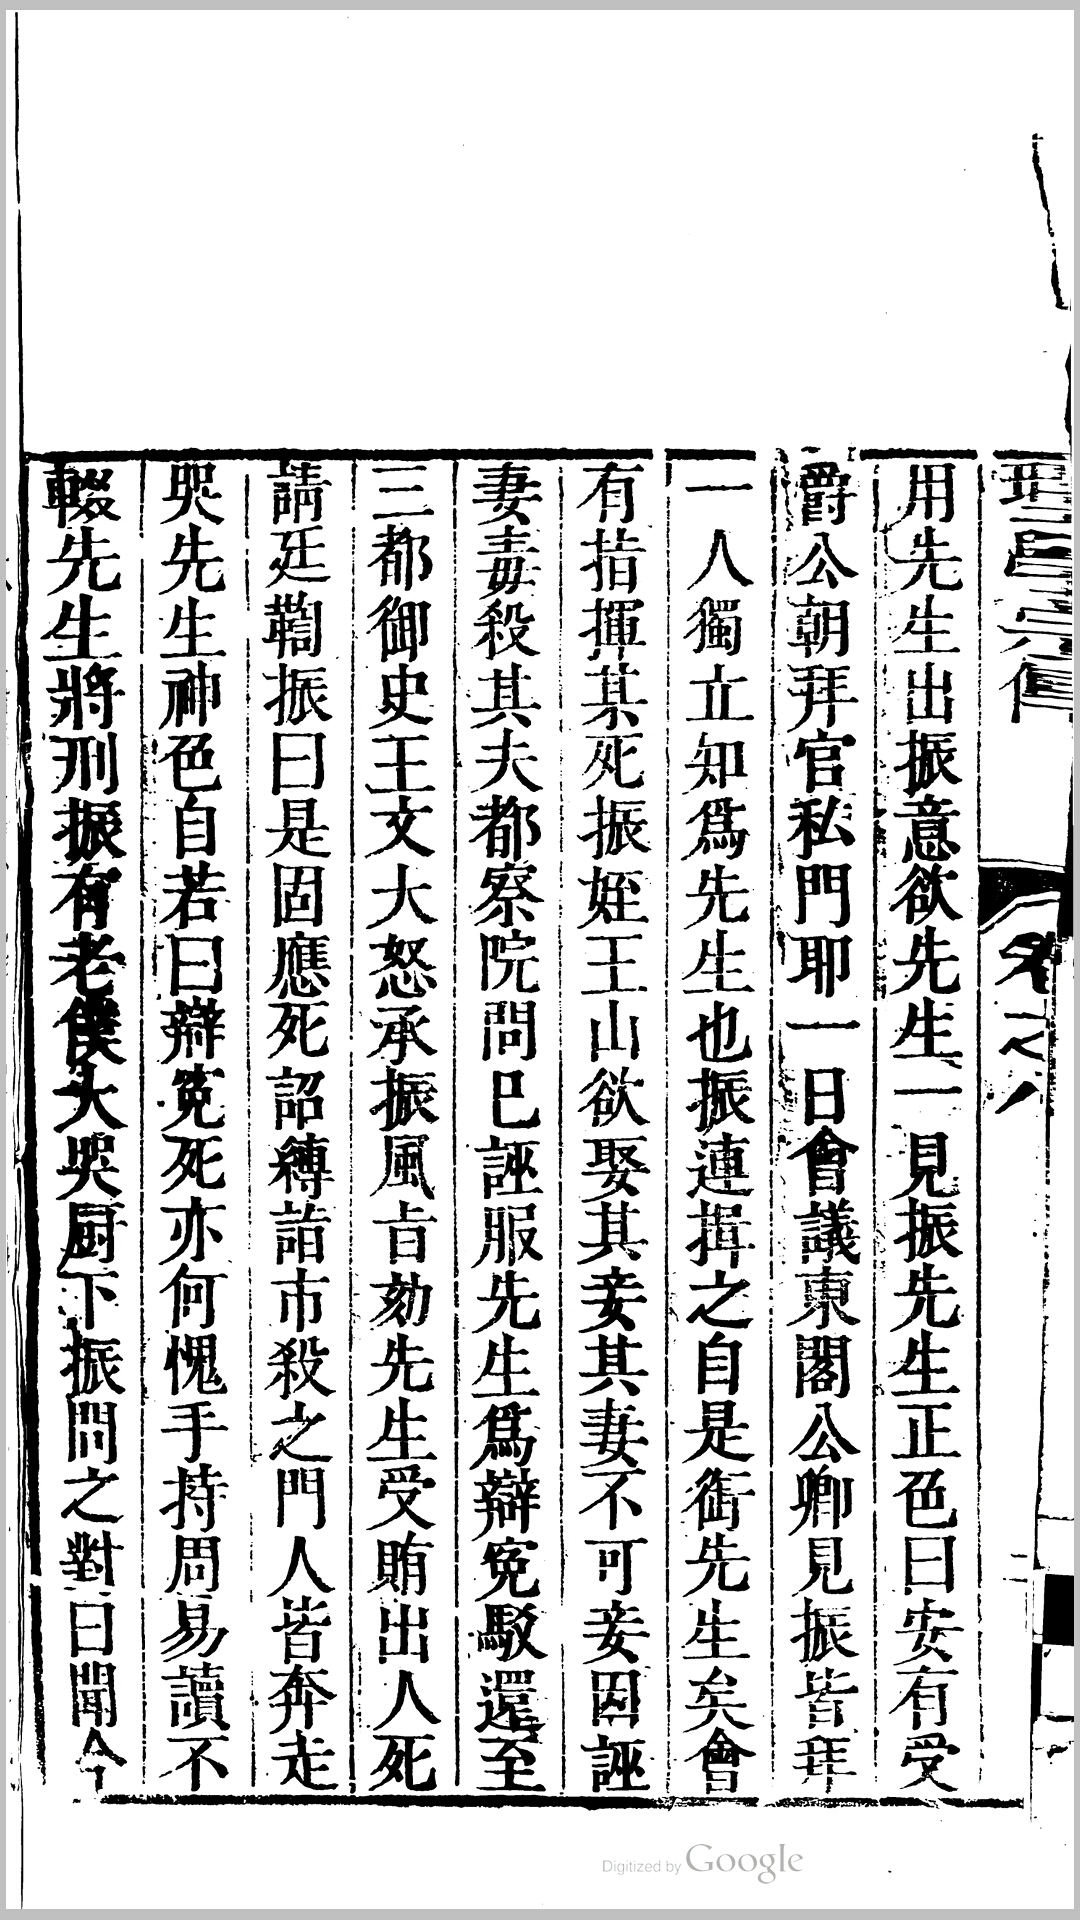 用先生出振意欲先生一見振先生正色曰安有受
爵公朝拜官私門耶一日會議東閣公卿見振皆拜
一人獨立知爲先生也振連揖之自是銜先生矣會
有指揮某死振姪王山欲娶其妾其妻不可妾因誣
妻毒殺其夫都察院問已誣服先生爲辯寃駁還至
三都御史王文大怒承振風旨劾先生受賄出人死
請廷鞫振曰是固應死詔縛詣市殺之門人皆奔走
哭先生神色自若曰辯寃死亦何愧手持周易讀不
輟先生將刑振有老僕大哭厨下振問之對曰聞今
卷之八
Digitized by Google